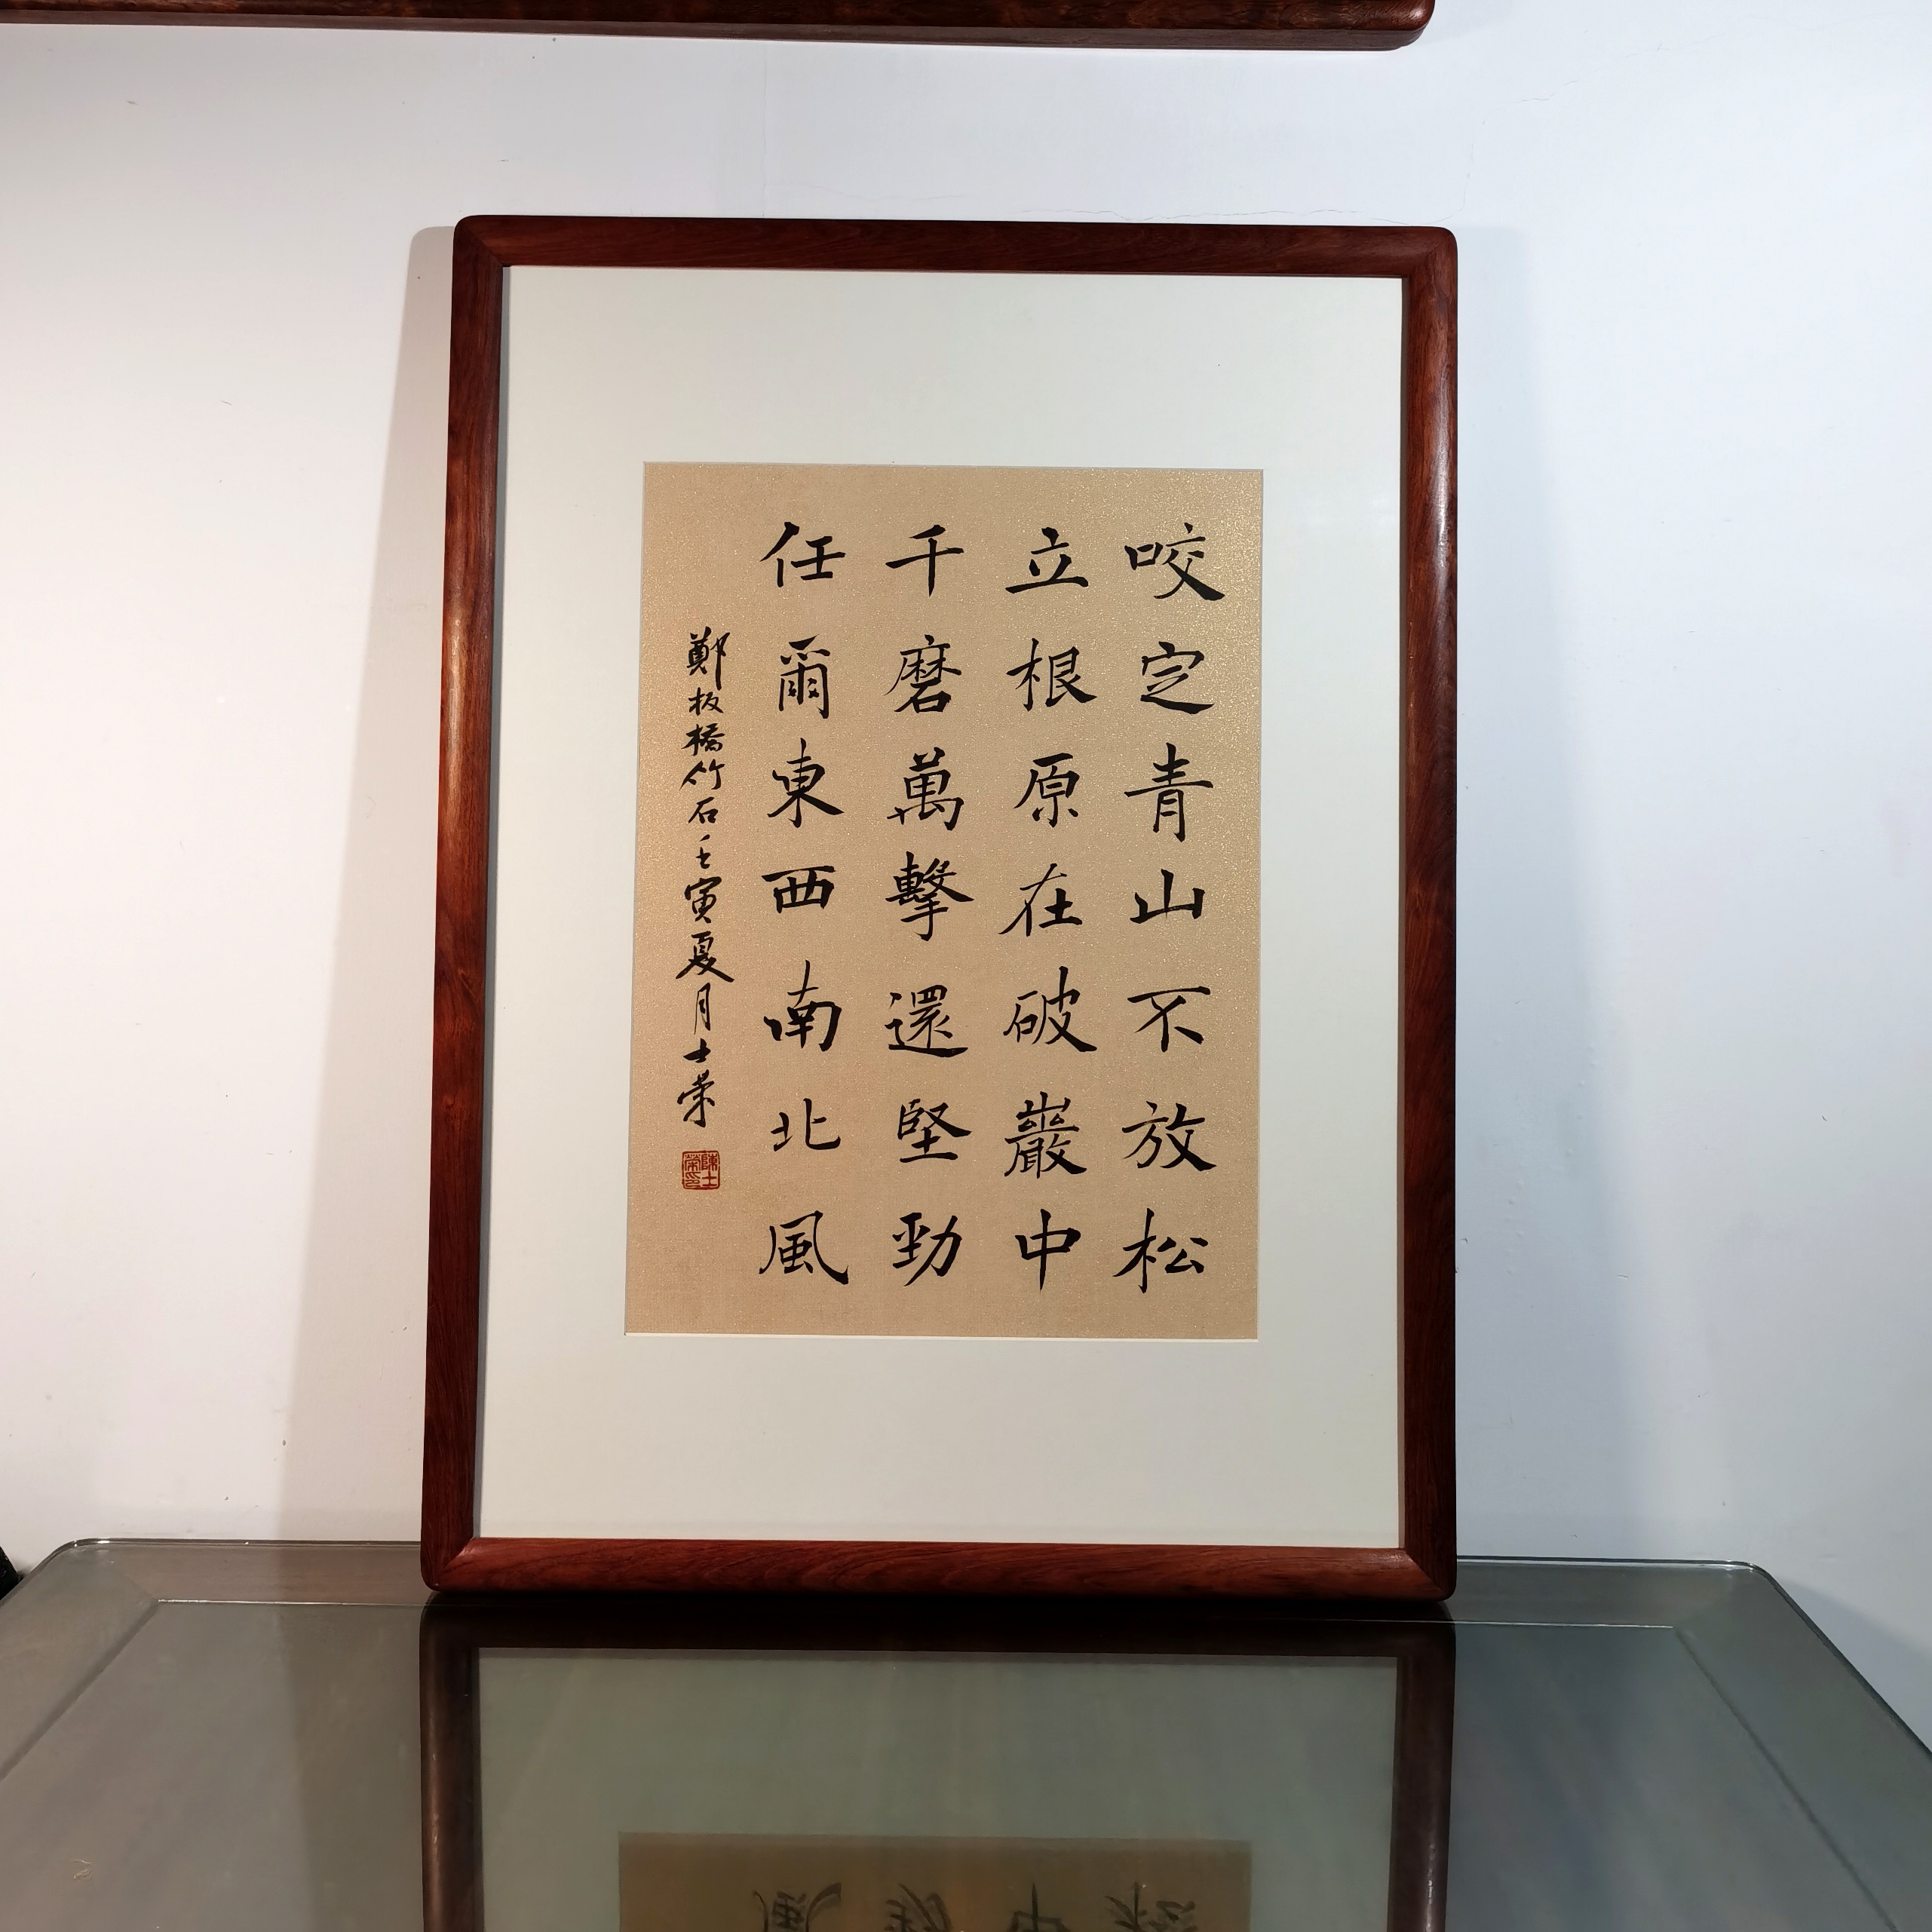 咬定青山不放松
立根原在破巖中
千磨萬擊還堅勁
任爾東西南北風
鄭板橋竹石壬寅夏月士榮
陳士榮印